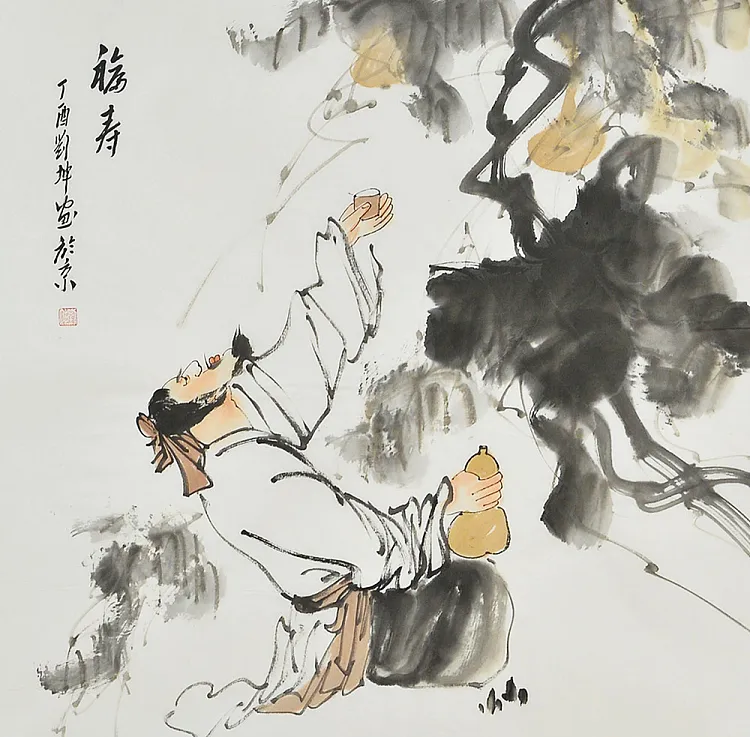 福寿
丁酉刘坤画於京